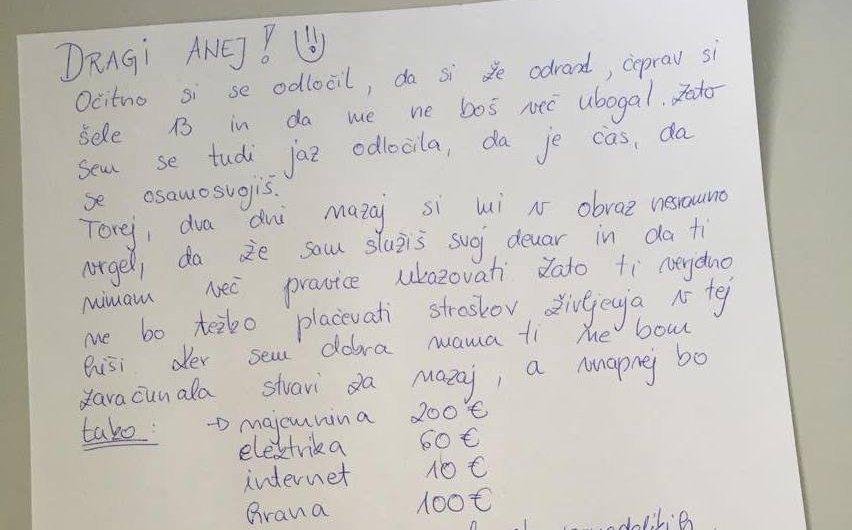 DRAGI ANEJ!
Očitno si se odločil, da si že odrasel, čeprav si
šele 13 in da me ne boš več ubogal. Zato
sem se tudi jaz odločila, da je čas, da
se osamosvojiš.
Torej, dva dni nazaj si mi v obraz nesramno
vrgel, da že sam služiš svoj denar in da ti
nimam več pravice ukazovati. Zato ti verjetno
ne bo težko plačevati stroškov življenja v tej
hiši. Ker sem dobra mama ti ne bom
zaračunala stvari za nazaj, a vnaprej bo
tako: → najemnina 200 €
elektrika 60 €
internet 10 €
hrana 100 €